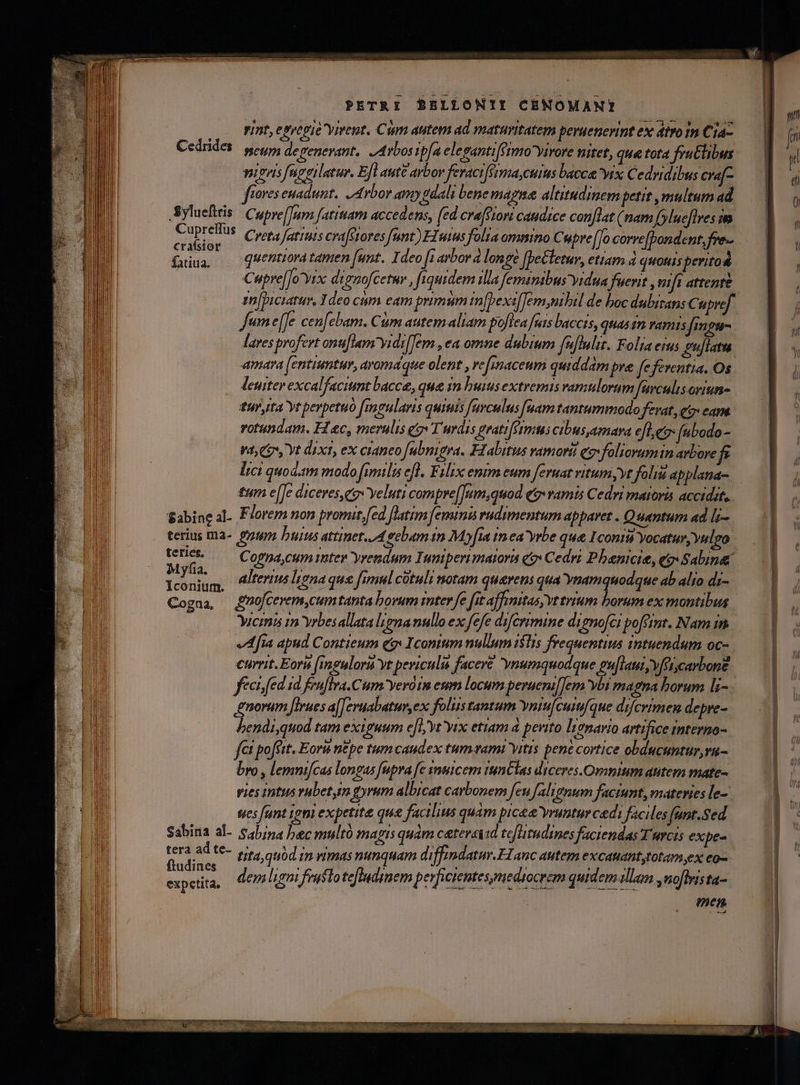 PETRI BELLONII CENOMANI
rint, egregiè virent. Cùm autem ad maturitatem peruenerint ex atro in Cia-
Cedrides neum degenerant. Arbos ipsa elegantissimo virore nitet, quæ tota fructibus
nigris sugeilatur. Est autē arbor feracissima, cuius baccæ vix Cedridibus cras-
siores euadunt. Arbor amygdali bene magnæ altitudinem petit, multum ad
Sylvestris Cupressum satiuam accedens, sed crassiori caudice constat (nam sylvestres in
Cupressus Creta satiuis crassiores sunt) Huius folia omnino Cupresso correspondent, fre-
crassior
satiua. quentiora tamen sunt. Ideo si arbor à longè spectetur, etiam à quouis perito à
Cupresso vix dignoscetur, siquidem illa feminibus vidua fuerit, nisi attentè
inspiciatur. Ideo cùm eam primùm inspexissem, nihil de hoc dubitans Cupres-
sum esse censebam. Cùm autem aliam postea suis baccis, quas in ramis singu-
lares profert onustam vidissem, ea omne dubium sustulit. Folia eius gustatu
amara sentiuntur, aromáque olent, resinaceum quiddam præ se ferentia. Os
leuiter excalfaciunt baccæ, quæ in huius extremis ramulorum surculis oriun-
tur, ita vt perpetuò singularis quiuis surculus suam tantummodo ferat, & eam
rotundam. Hæc, merulis & Turdis gratissimus cibus, amara est, & subodo-
ra, &, vt dixi, ex cianeo subnigra. Habitus ramorū & foliorum in arbore si-
lici quodam modo similis est. Filix enim eum seruat ritum, vt foliū applana-
tum esse diceres, & veluti compressum, quod & ramis Cedri maioris accidit.
Sabinę al- Florem non promit, sed statim seminis rudimentum apparet. Quantum ad li-
terius ma- gnum huius attinet. Agebam in Mysia in ea vrbe quæ Iconiū vocatur, vulgo
teries.
Mysia. Cogna, cum inter vrendum Iuniperi maioris & Cedri Phœnicia, & Sabinæ
Iconium. alterius ligna quæ simul cōtuli notam quærens qua vnamquodque ab alio di-
Cogna, gnoscerem, cum tanta horum inter se sit affinitas, vt trium horum ex montibus
vicinis in vrbes allata ligna nullo ex sese discrimine dignosci possint. Nam in
Asia apud Contieum & Iconium nullum istis frequentius intuendum oc-
currit. Eorū singulorū vt periculū facerē vnumquodque gustaui, vssi, carbonē
feci, sed id frustra. Cum verò in eum locum peruenissem vbi magna horum li-
gnorum strues asseruabatur, ex foliis tantum vniuscuiusque discrimen depre-
hendi, quod tam exiguum est, vt vix etiam à perito lignario artifice interno-
sci possit. Eorū nēpe tum caudex tum rami vitis penè cortice obducuntur, ru-
bro, lemniscas longas supra se inuicem iunctas diceres. Omnium autem mate-
ries intus rubet, in gyrum albicat carbonem seu salignum faciunt, materies le-
ues sunt igni expetitæ quæ facilius quàm piceæ vruntur cædi faciles sunt. Sed
Sabina al- Sabina hæc multò magis quàm cætera ad testitudines faciendas Turcis expe-
tera ad te- tita, quòd in rimas nunquam diffindatur. Hanc autem excauant, totam, ex eo-
studines
expetita, dem ligni frusto testudinem perficientes, mediocrem quidem illam, nostris ta-
men